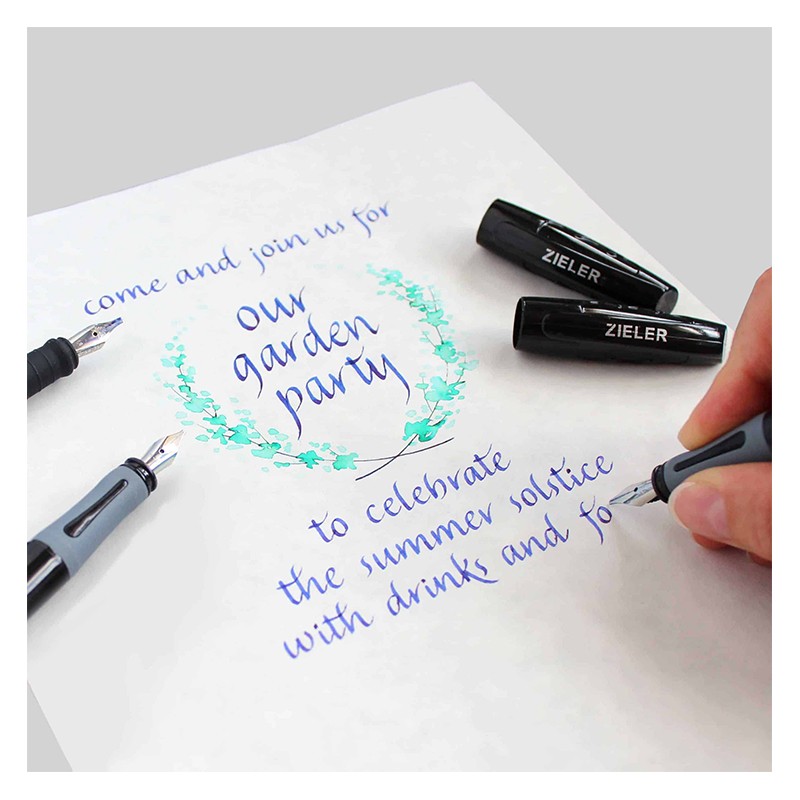 come and join us for
our
garden
party
to celebrate
the summer solstice
with drinks and fo
ZIELER
ZIELER